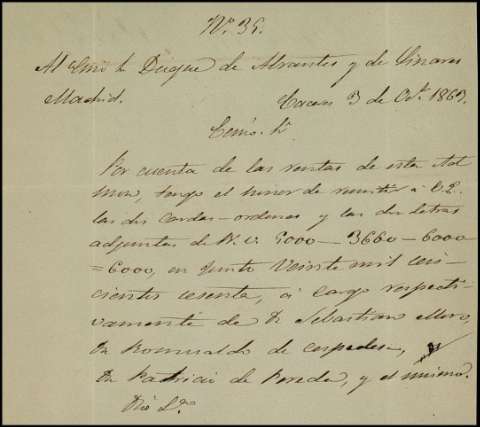 Nº 35.
Al Exmo Sr Duque de Abrantes y de Linares
Madrid. Caceres 3 de Oct. 1863.
Excmo. Sr
Por cuenta de las rentas de esta Ad
mon, tengo el honor de remitir á V.E.
las dos cartas-ordenes y las dos letras
adjuntas de R. v. 5000 — 3660 — 6000
= 6000, en junto Veinte mil seis-
cientos sesenta, á cargo respecti-
vamente de D. Sebastian
Dn Romualdo de Cespedes,
Dn Patricio de Pereda, y el mismo.
Dio Sr